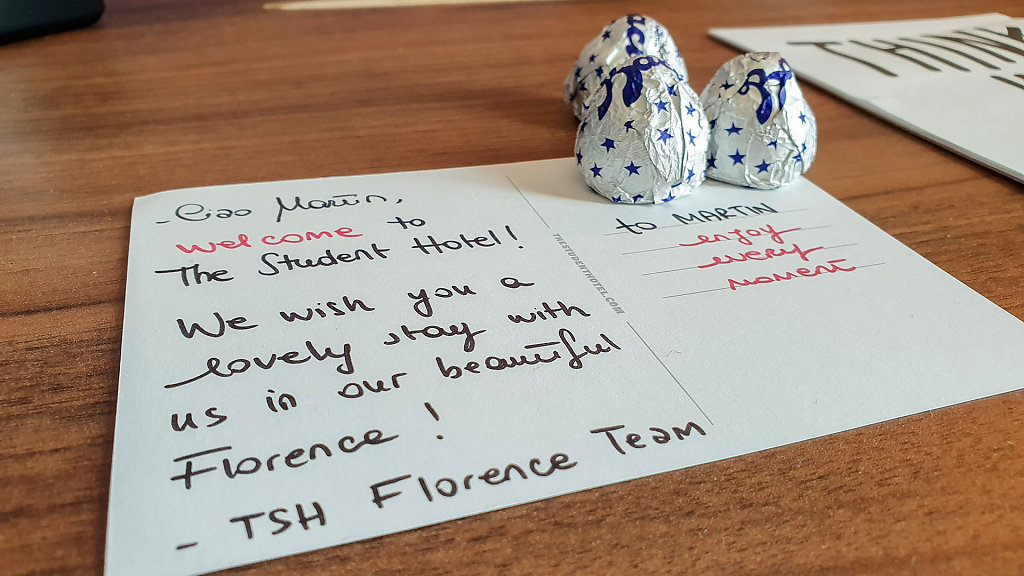 - Ciao Martin,
welcome to
The Student Hotel!
We wish you a
lovely stay with
us in our beautiful
Florence!
- TSH Florence Team
THESTUDENTHOTEL.COM
to MARTIN
enjoy
every
moment
THINK